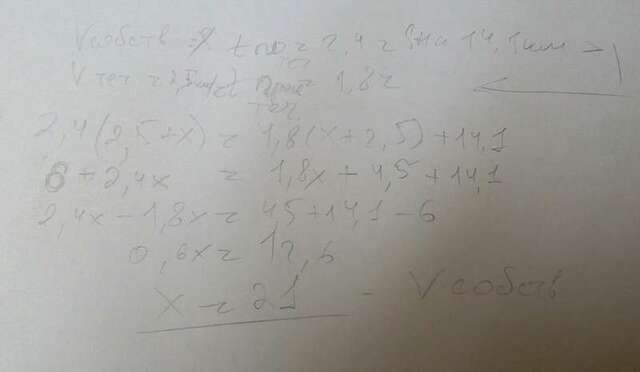 V собств = ? t по = 2,4 ч на 14,1 км
теч
V теч = 2,5 км/ч t прот = 1,8 ч
теч
2,4(2,5+x) = 1,8(x+2,5)+14,1
6+2,4x = 1,8x+4,5+14,1
2,4x-1,8x=4,5+14,1-6
0,6x=12,6
x=21 - V собств